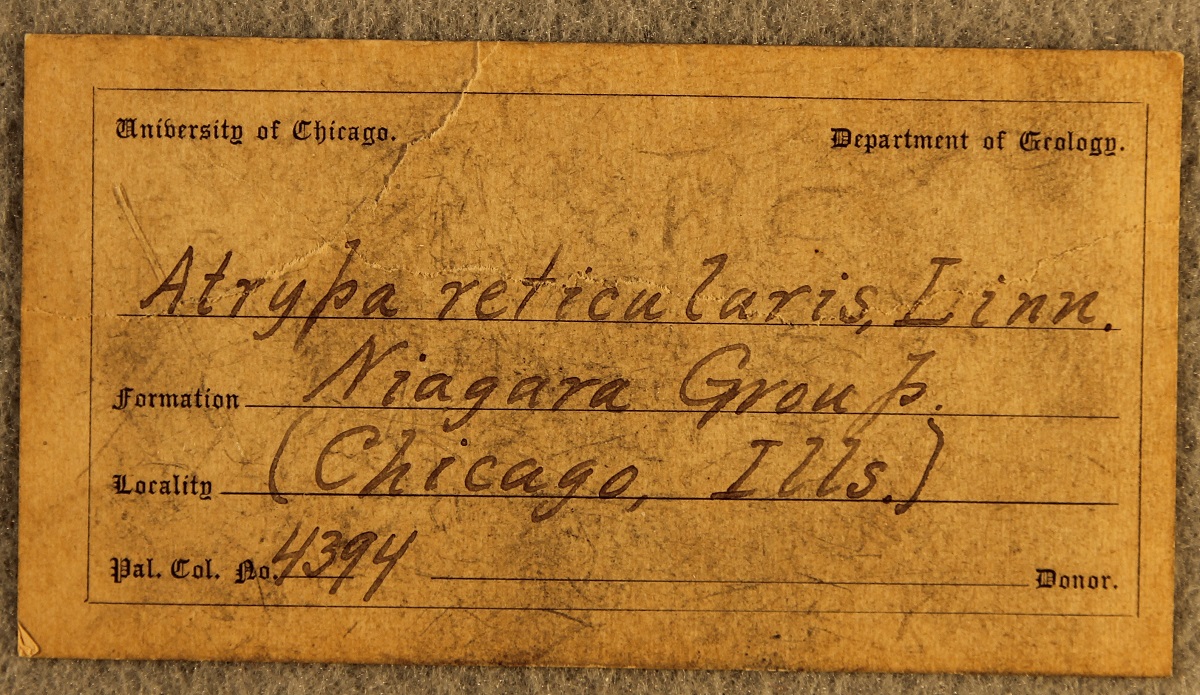 University of Chicago. Department of Geology.
Atrypa reticularis, Linn.
Formation Niagara Group.
Locality (Chicago, Ills.)
Pal. Col. No. 4394 Donor.